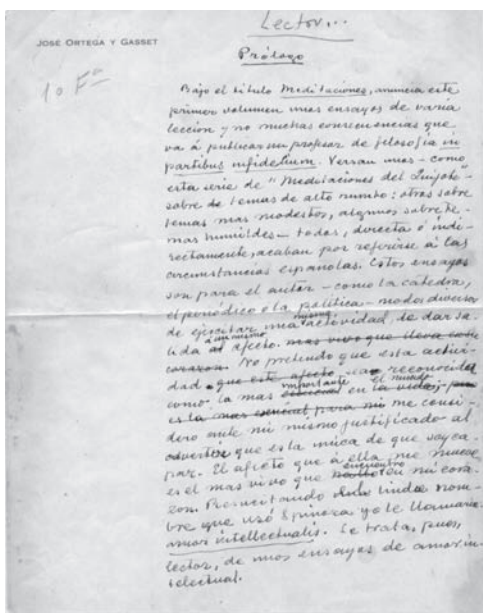 Lector...
JOSÉ ORTEGA Y GASSET
Prólogo
1o
Bajo el título Meditaciones, anuncia este
primer volumen unos ensayos de varia
lección y no muchas consecuencias que
va á publicar un profesor de filosofía in
partibus infidelium. Versan unos – como
esta serie de "Meditaciones del Quijote –
sobre de temas de alto rumbo; otros sobre
temas mas modestos, algunos sobre te-
mas humildes – todos, directa ó indi-
rectamente, acaban por referirse á las
circunstancias españolas. Estos ensayos
son para el autor – como la cátedra,
el periódico o la política – modos diversos
de ejercitar una misma actividad, de dar sa-
lida á un mismo afecto. mas vivo que lleva en el
corazon. No pretendo que esta activi-
dad que este afecto sea reconocida
como la mas importante en el mundo la vida;
es la mas para mi me consi-
dero ante mí mismo justificado al
advertir que es la única de que soy ca-
paz. El afecto que á ella me mueve
es el mas vivo que encuentro en mi cora-
zon. Resucitando el linda nom-
bre que usó Spinoza yo le llamaria
amor intellectualis. Se trata, pues,
lector, de unos ensayos de amor in-
telectual.